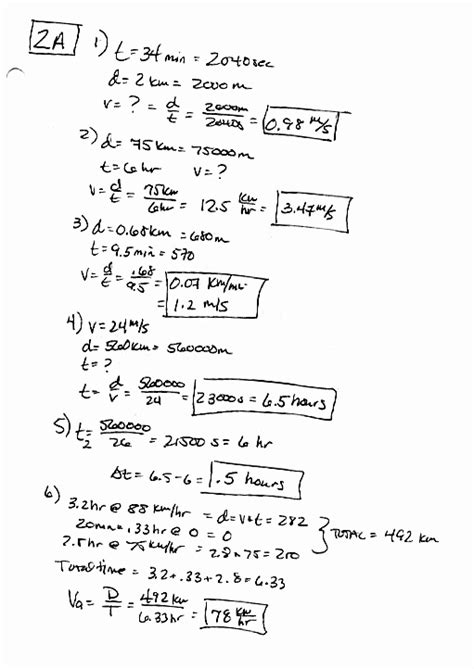 2A 1) t = 34 min = 2040 sec
d = 2 km = 2000 m
v = ? = d/t = 2000m/2040s = 0.98 m/s
2) d = 75 km = 75000 m
t = 6 hr v = ?
v = d/t = 75km/6hr = 12.5 km/hr = 3.47 m/s
3) d = 0.68 km = 680 m
t = 9.5 min = 570
v = d/t = .68/9.5 = 0.07 km/min
= 1.2 m/s
4) v = 24 m/s
d = 560 km = 560000 m
t = ?
t = d/v = 560000/24 = 23000 s = 6.5 hours
5) t2 = 560000/26 = 21500 s = 6 hr
Δt = 6.5 - 6 = .5 hours
6) 3.2 hr @ 88 km/hr = d = v*t = 282
20 min = .33 hr @ 0 = 0
2.8 hr @ 75 km/hr = 2.8 * 75 = 210
} TOTAL = 492 km
Total time = 3.2 + .33 + 2.8 = 6.33
Va = D/T = 492 km/6.33 hr = 78 km/hr